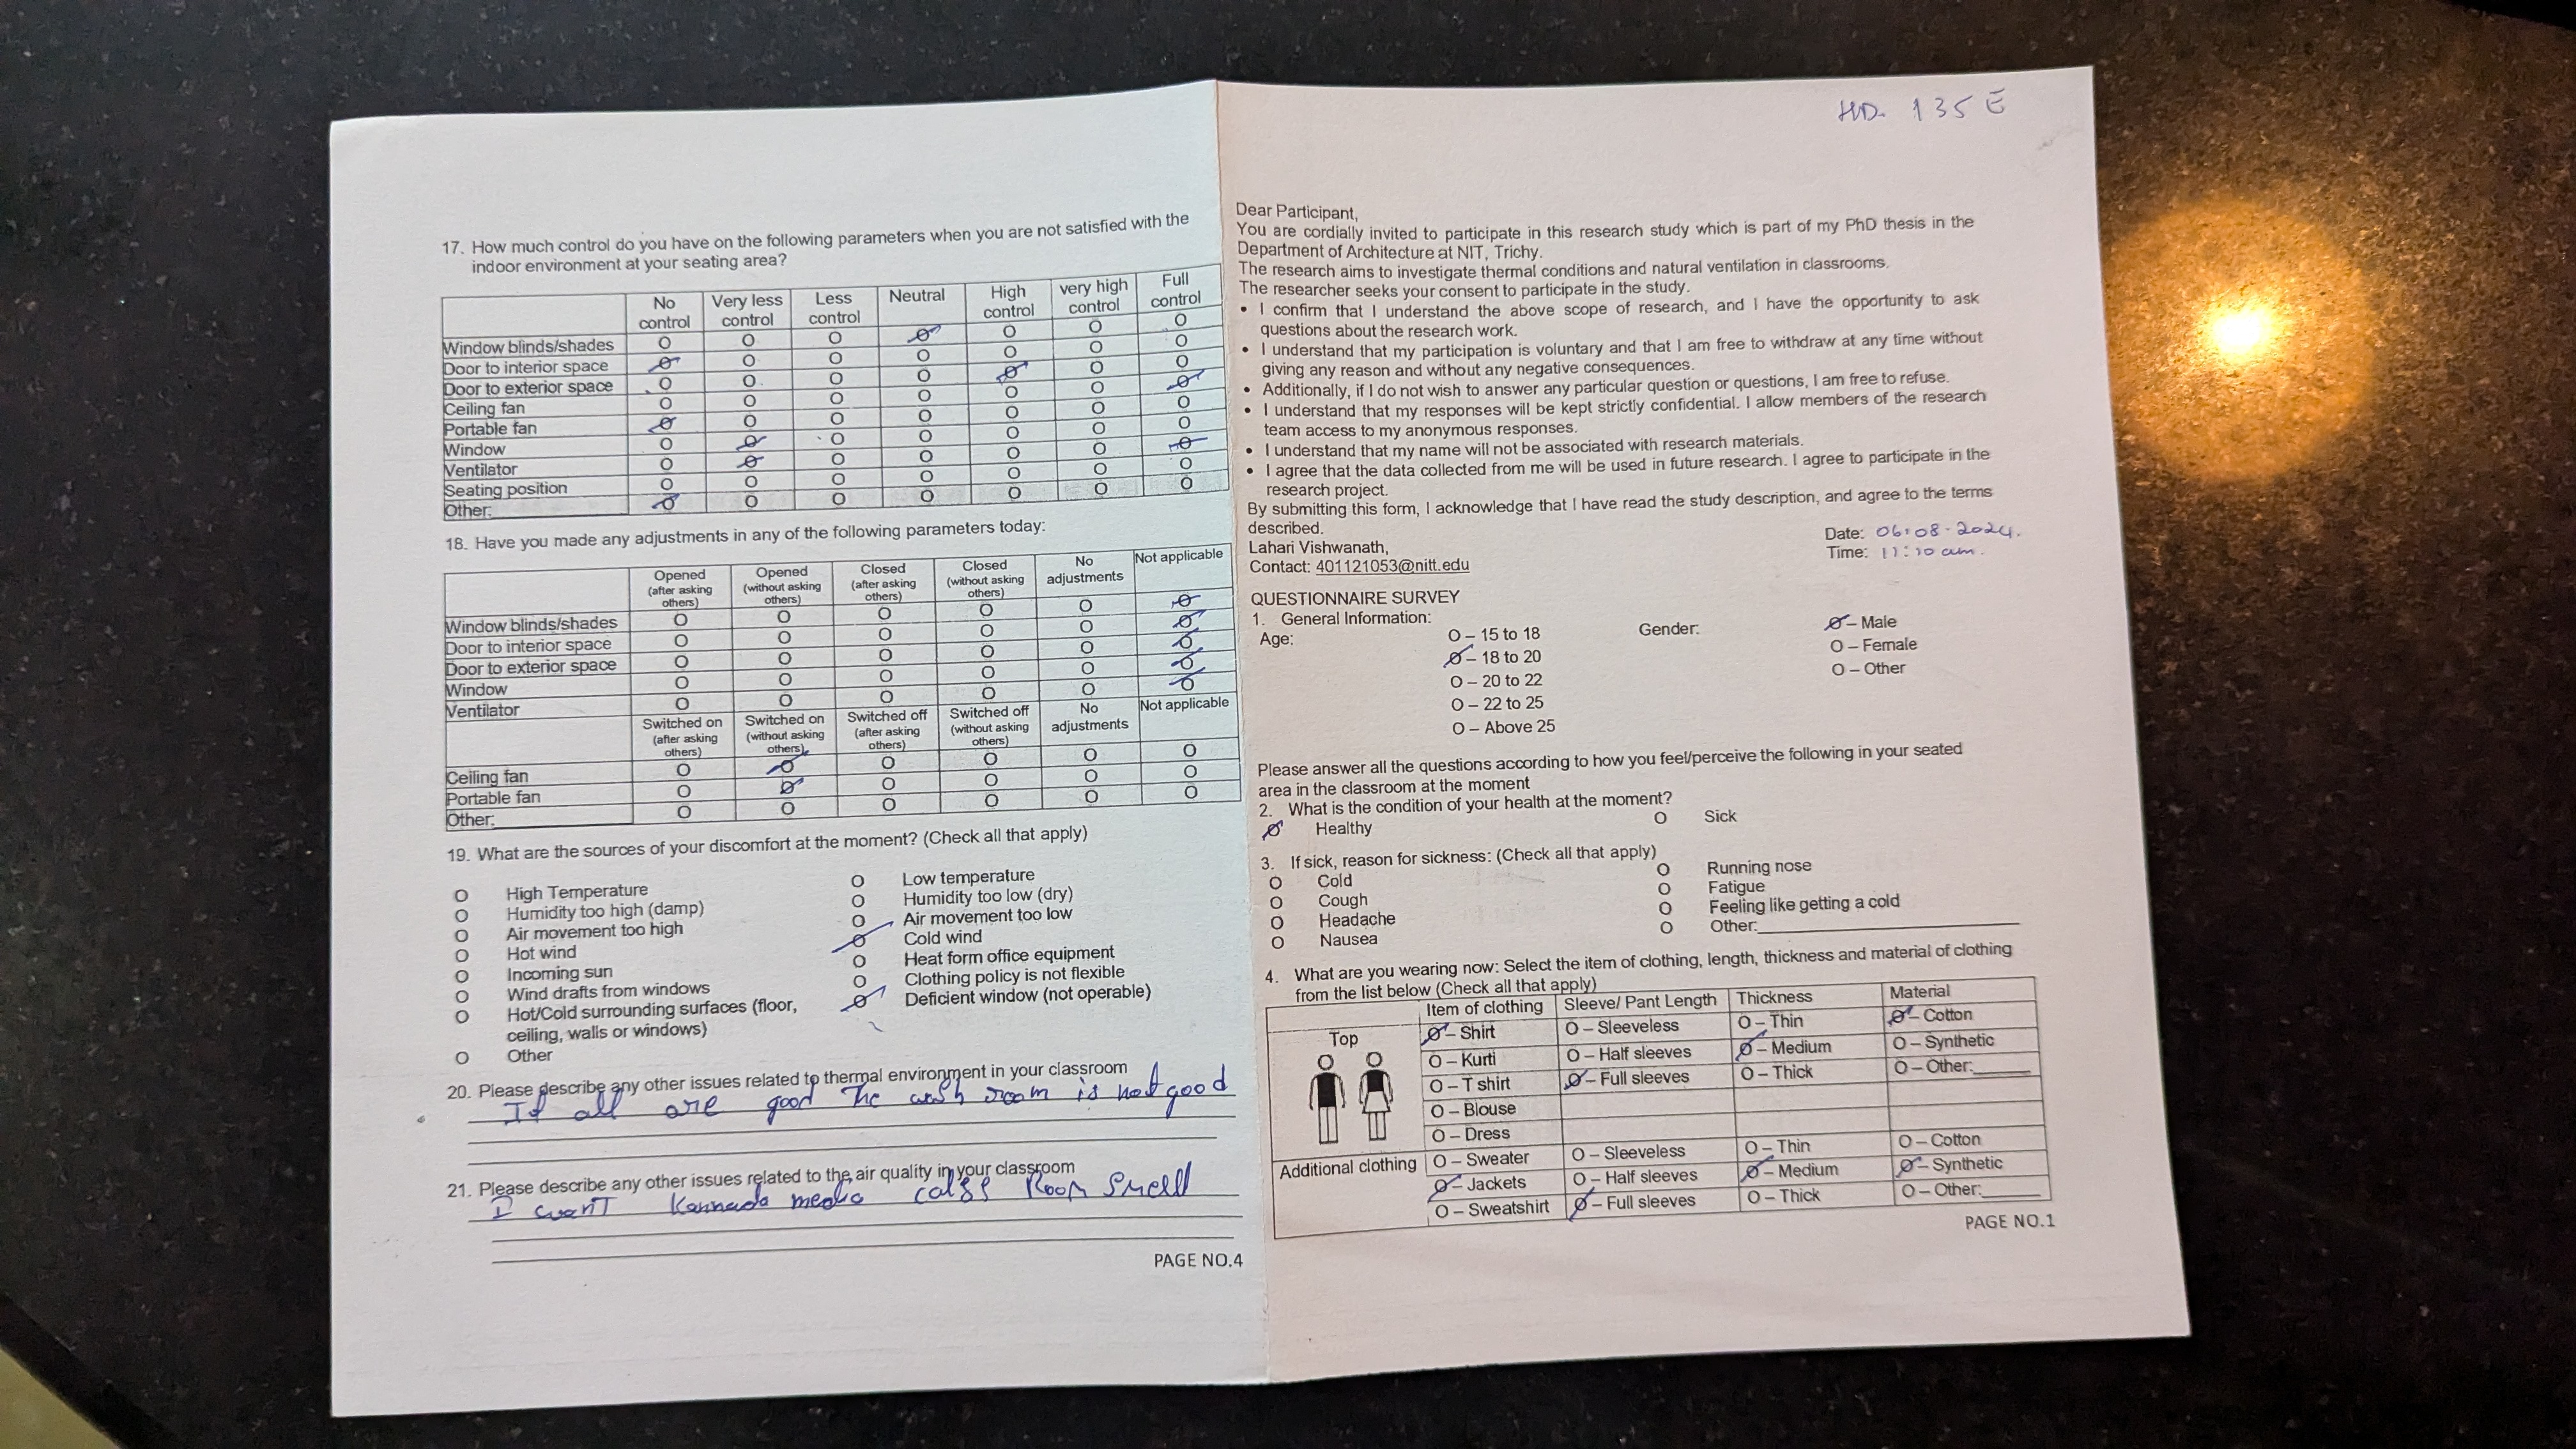 17. How much control do you have on the following parameters when you are not satisfied with the
indoor environment at your seating area?
No control Very less control Less control Neutral High control very high control Full control
Window blinds/shades O O O O O O O
Door to interior space O O O O O O O
Door to exterior space O O O O O O O
Ceiling fan O O O O O O O
Portable fan O O O O O O O
Window O O O O O O O
Ventilator O O O O O O O
Seating position O O O O O O O
Other: O O O O O O O
18. Have you made any adjustments in any of the following parameters today:
Opened (after asking others) Opened (without asking others) Closed (after asking others) Closed (without asking others) No adjustments Not applicable
Window blinds/shades O O O O O O
Door to interior space O O O O O O
Door to exterior space O O O O O O
Window O O O O O O
Ventilator O O O O O O
Switched on (after asking others) Switched on (without asking others) Switched off (after asking others) Switched off (without asking others) No adjustments Not applicable
Ceiling fan O O O O O O
Portable fan O O O O O O
Other: O O O O O O
19. What are the sources of your discomfort at the moment? (Check all that apply)
O High Temperature O Low temperature
O Humidity too high (damp) O Humidity too low (dry)
O Air movement too high O Air movement too low
O Hot wind O Cold wind
O Incoming sun O Heat form office equipment
O Wind drafts from windows O Clothing policy is not flexible
O Hot/Cold surrounding surfaces (floor, O Deficient window (not operable)
ceiling, walls or windows)
O Other
20. Please describe any other issues related to thermal environment in your classroom
all are good The wash room is not good
21. Please describe any other issues related to the air quality in your classroom
I want Kannada Room smell
PAGE NO.4
HD. 135 E
Dear Participant,
You are cordially invited to participate in this research study which is part of my PhD thesis in the
Department of Architecture at NIT, Trichy.
The research aims to investigate thermal conditions and natural ventilation in classrooms.
The researcher seeks your consent to participate in the study.
• I confirm that I understand the above scope of research, and I have the opportunity to ask
questions about the research work.
• I understand that my participation is voluntary and that I am free to withdraw at any time without
giving any reason and without any negative consequences.
• Additionally, if I do not wish to answer any particular question or questions, I am free to refuse.
• I understand that my responses will be kept strictly confidential. I allow members of the research
team access to my anonymous responses.
• I understand that my name will not be associated with research materials.
• I agree that the data collected from me will be used in future research. I agree to participate in the
research project.
By submitting this form, I acknowledge that I have read the study description, and agree to the terms
described.
Lahari Vishwanath,
Contact: 401121053@nitt.edu
Date: 06.08.2024.
Time: 11:10 am.
QUESTIONNAIRE SURVEY
1. General Information:
Age: O – 15 to 18 Gender: O – Male
O – 18 to 20 O – Female
O – 20 to 22 O – Other
O – 22 to 25
O – Above 25
Please answer all the questions according to how you feel/perceive the following in your seated
area in the classroom at the moment
2. What is the condition of your health at the moment?
O Healthy O Sick
3. If sick, reason for sickness: (Check all that apply)
O Cold O Running nose
O Cough O Fatigue
O Headache O Feeling like getting a cold
O Nausea O Other:
4. What are you wearing now: Select the item of clothing, length, thickness and material of clothing
from the list below (Check all that apply)
Item of clothing Sleeve/ Pant Length Thickness Material
Top O – Shirt O – Sleeveless O – Thin O – Cotton
O – Kurti O – Half sleeves O – Medium O – Synthetic
O – T shirt O – Full sleeves O – Thick O – Other:
O – Blouse
O – Dress
Additional clothing O – Sweater O – Sleeveless O – Thin O – Cotton
O – Jackets O – Half sleeves O – Medium O – Synthetic
O – Sweatshirt O – Full sleeves O – Thick O – Other:
PAGE NO.1